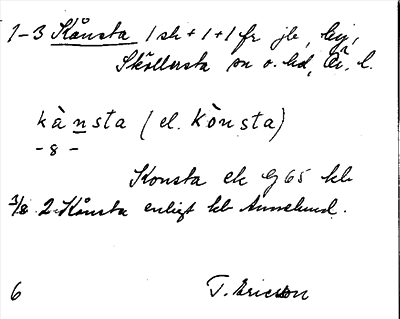 1-3 Kånsta 1 sk + 1 + 1 fr jb,
Sköllersta sn o. hd,
kànsta (el. kònsta)
- 8 -
Konsta ek G 65 kb
3/8 2 Kånsta enligt kb Annelund.
6 T. Ericson